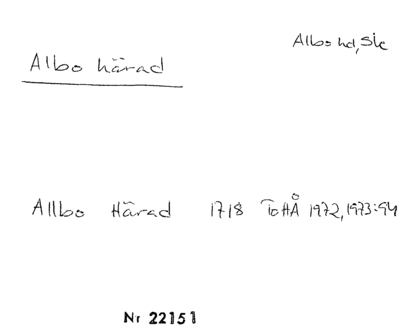 Albo hd, Sk
Albo härad
Allbo Härad 1718 ToHÅ 1972, 1973:94
Nr 22151